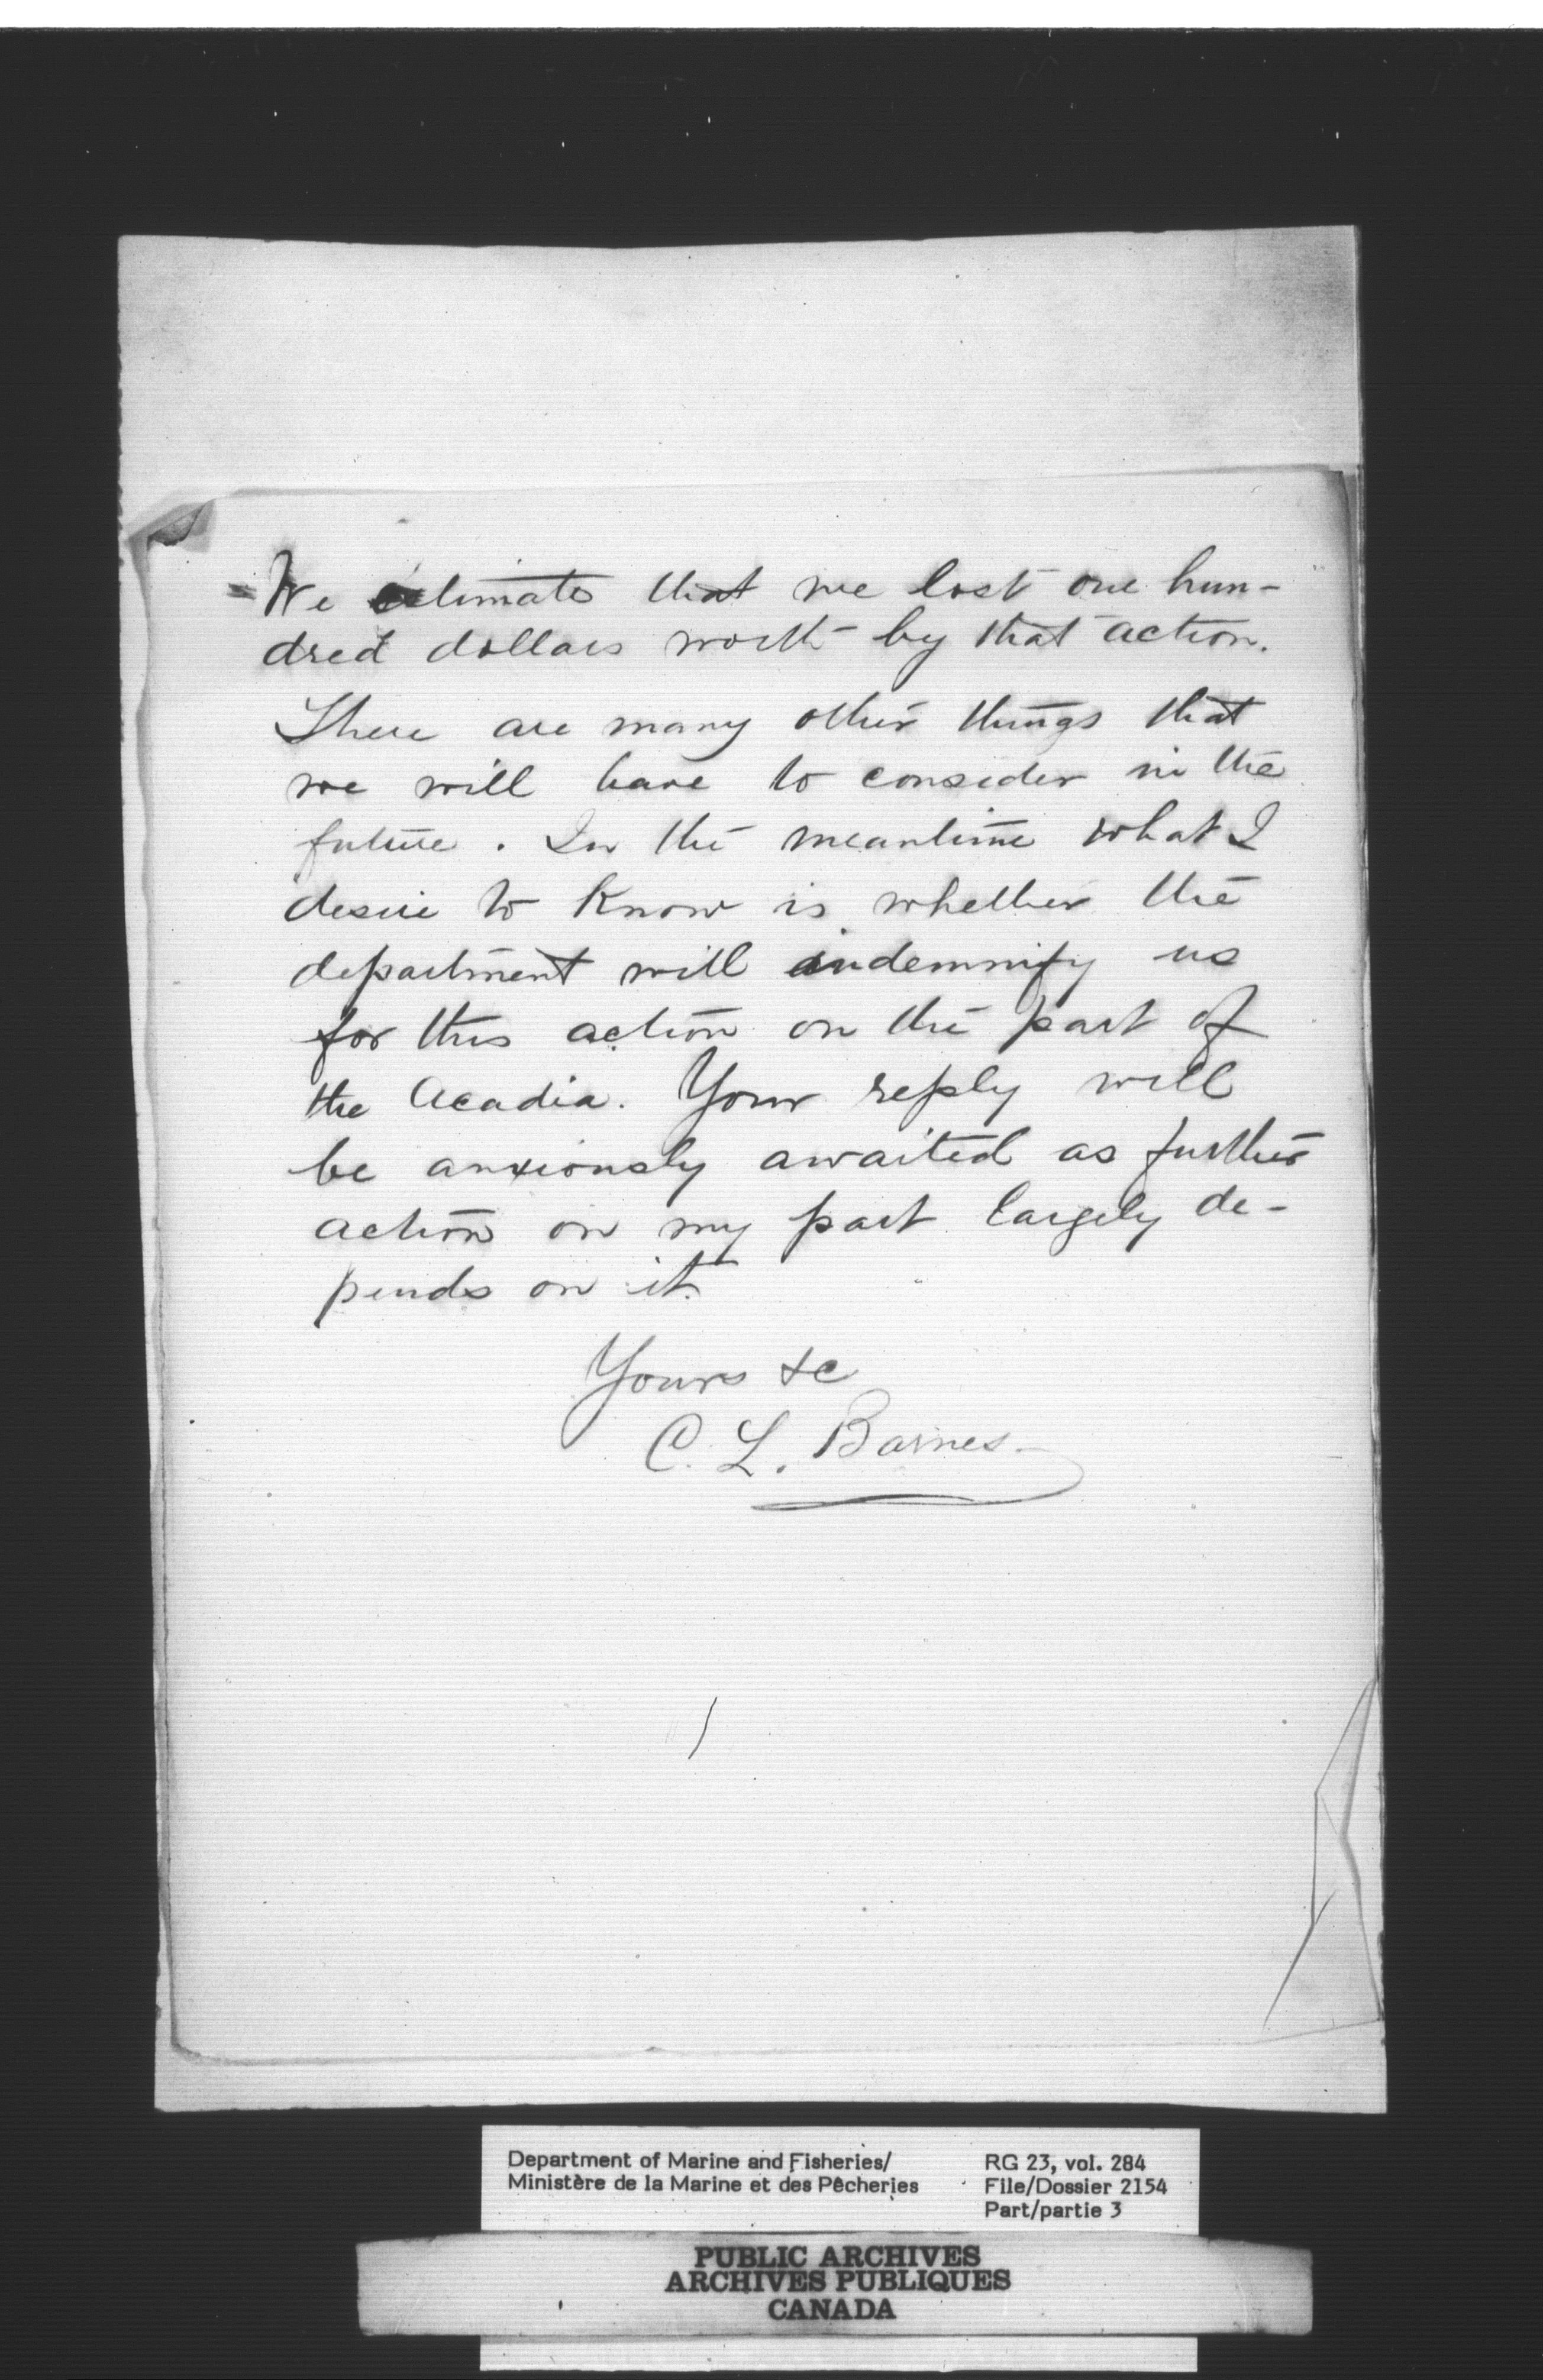 We estimate that we lost one hun-
dred dollars worth by that action.
There are many other things that
we will have to consider in the
future. In the meantime what I
desire to know is whether the
department will indemnify us
for this action on the part of
the Acadia. Your reply will
be anxiously awaited as further
action on my part largely de-
pends on it.
Yours &c
C. L. Barnes
Department of Marine and Fisheries/
Ministère de la Marine et des Pêcheries
RG 23, vol. 284
File/Dossier 2154
Part/partie 3
PUBLIC ARCHIVES
ARCHIVES PUBLIQUES
CANADA